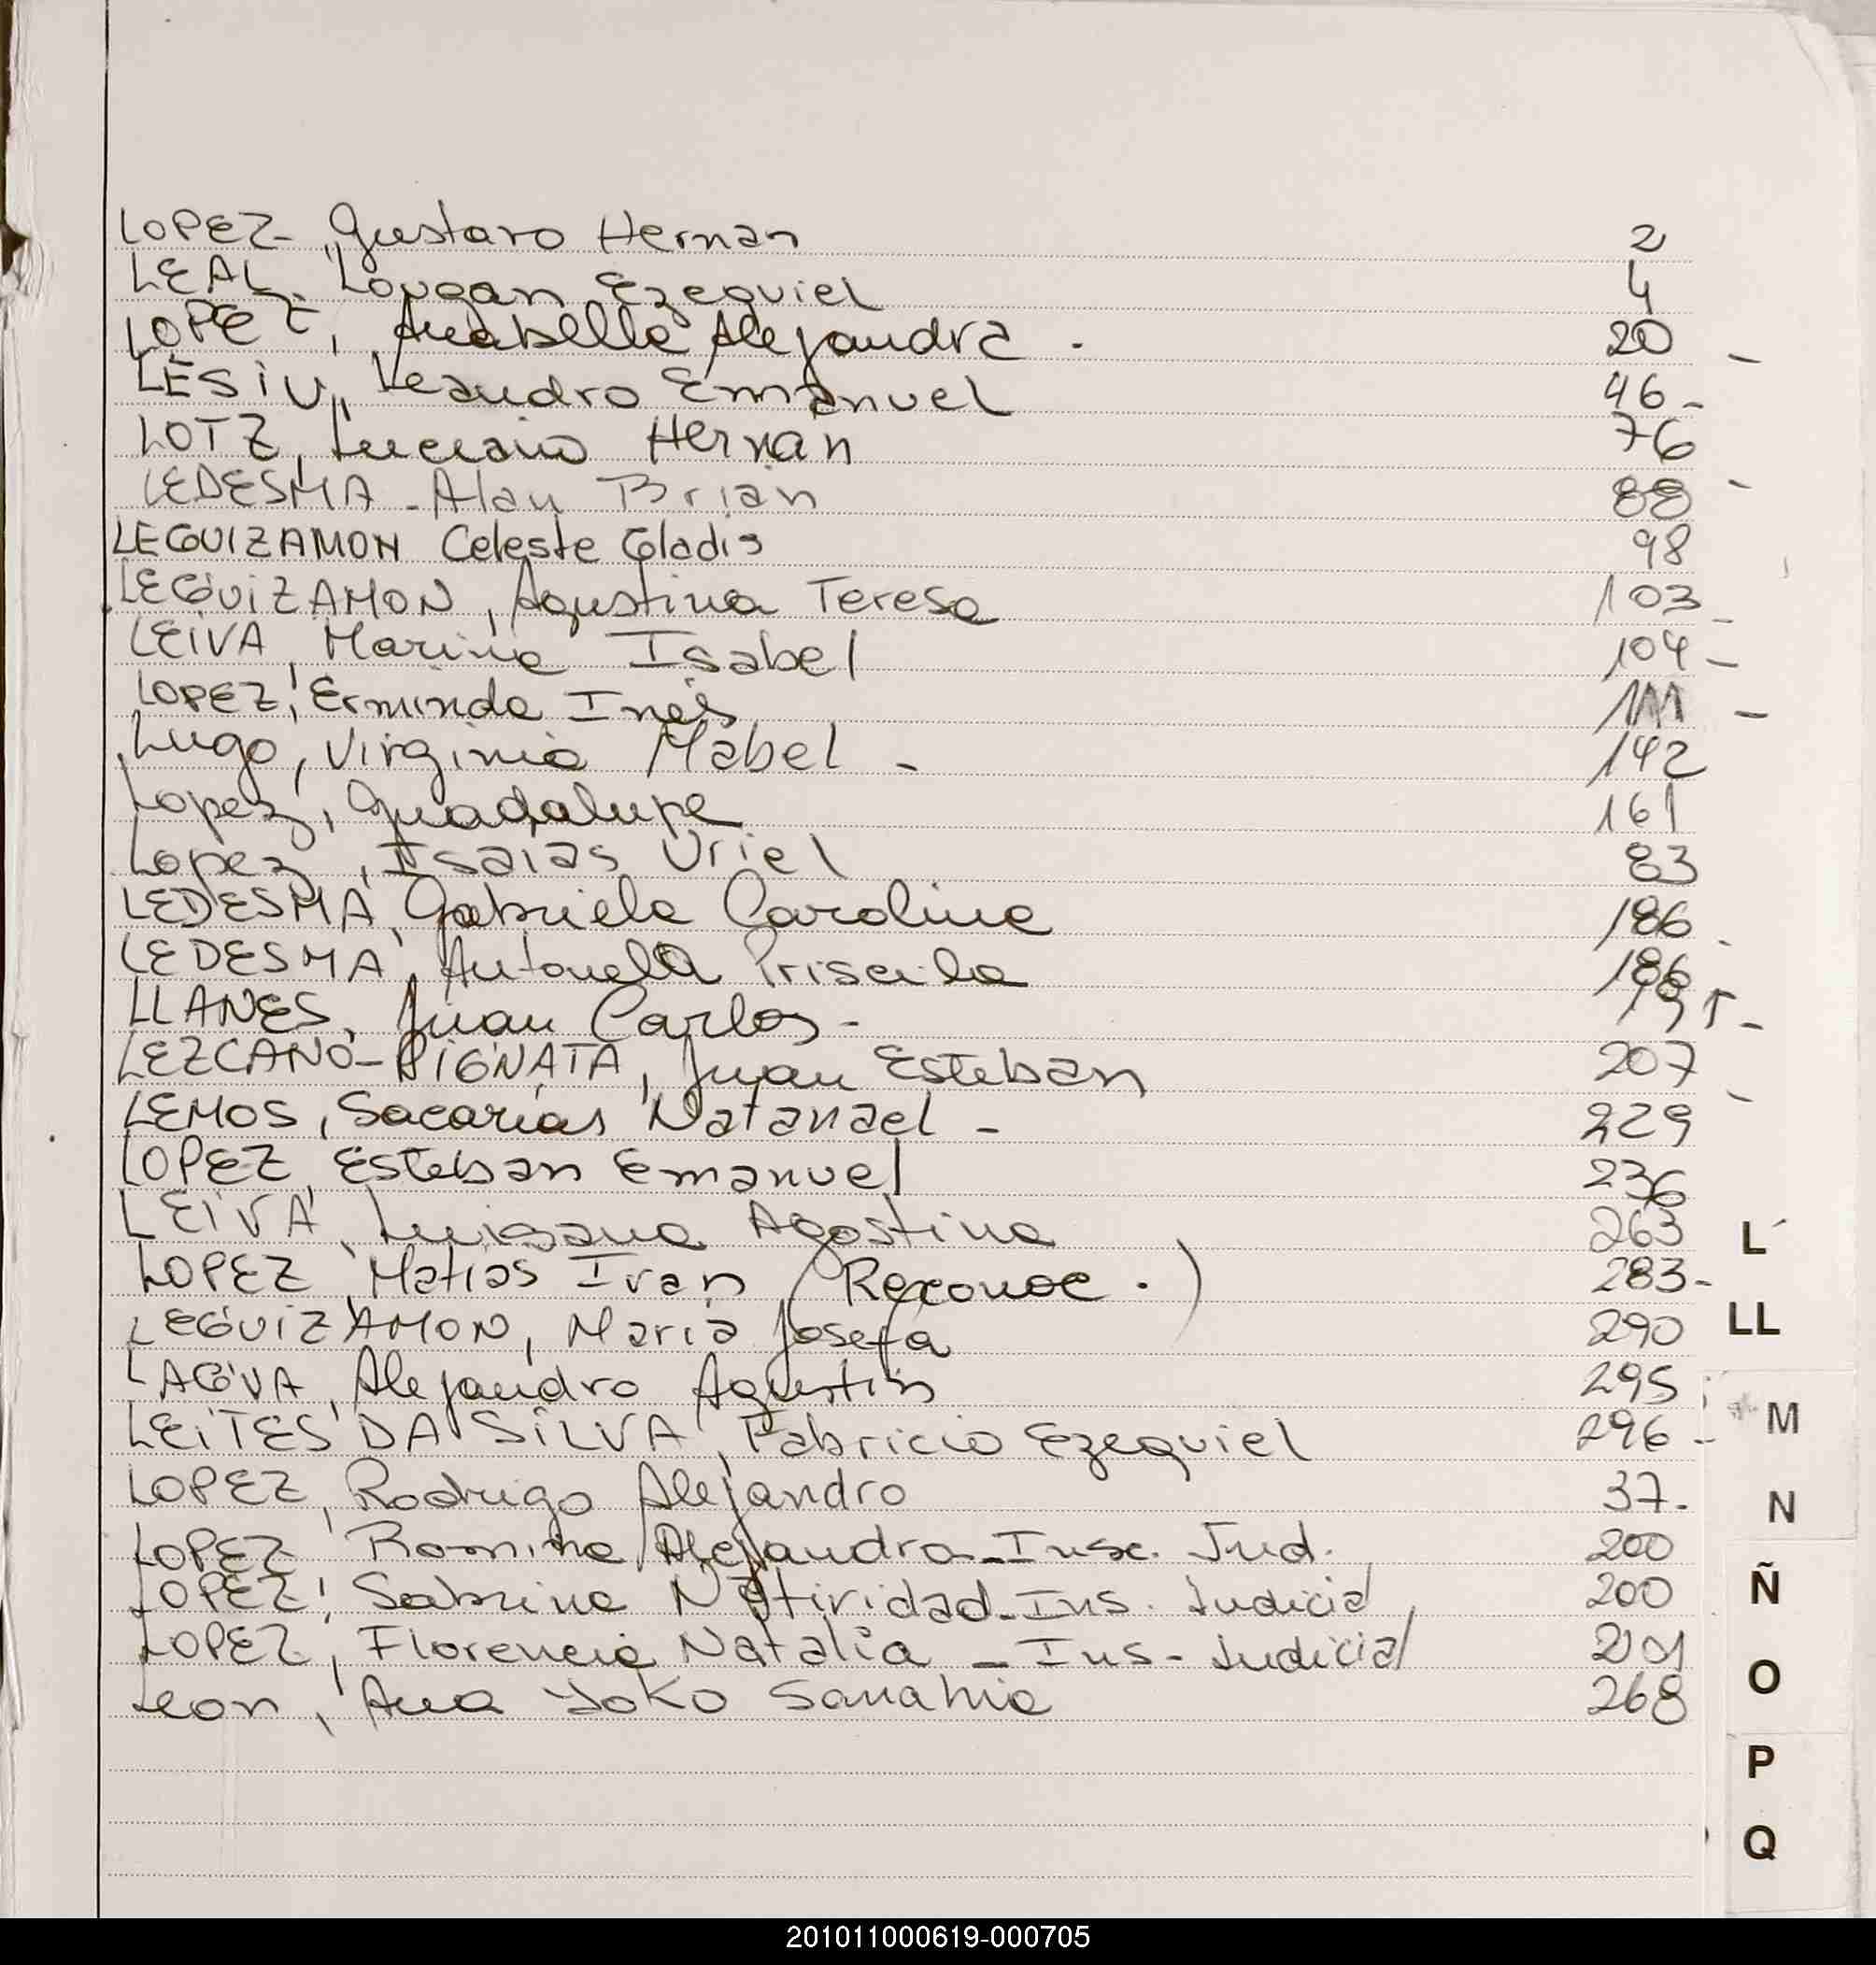 LOPEZ, Gustavo Hernan 2
LEAL, Lougan Ezequiel 4
LOPEZ, Anabella Alejandra. 20 -
LESiU, Leandro Emanuel 46 -
LOTZ, Luciano Hernan 76
LEDESMA - Alan Brian 88 -
LEGUIZAMON Celeste Gladis 98
LEGUiZAMON, Agustina Teresa 103 -
LEiVA, Marina Isabel 104 -
LOPEZ, Erminda Inés 111 -
Lugo, Virginia Mabel - 142
Lopez, Guadalupe 161
Lopez, Isaias Uriel 83
LEDESMA, Gabriela Carolina 186 -
LEDESMA, Antonella Priscila 186
LLANES, Juan Carlos - 195 -
LEZCANO-PIGNATA, Juan Esteban 207 -
LEMOS, Sacarias Natanael - 229
LOPEZ, Esteban Emanuel 236
LEiVA, Luisana Agostina 263
LOPEZ, Matias Ivan (Reconoc.) 283 -
LEGUiZAMON, Maria Josefa 290
LAGVA, Alejandro Agustin 295
LEiTES DA SiLVA, Fabricio Ezequiel 296 -
LOPEZ, Rodrigo Alejandro 37.
LOPEZ, Romina Alejandra - Insc. Jud. 200
LOPEZ, Sabrina Natividad - Ins. Judicial 200
LOPEZ, Florencia Natalia - Ins - Judicial 201
Leon, Ana Yoko 268
L
LL
M
N
Ñ
O
P
Q
201011000619-000705